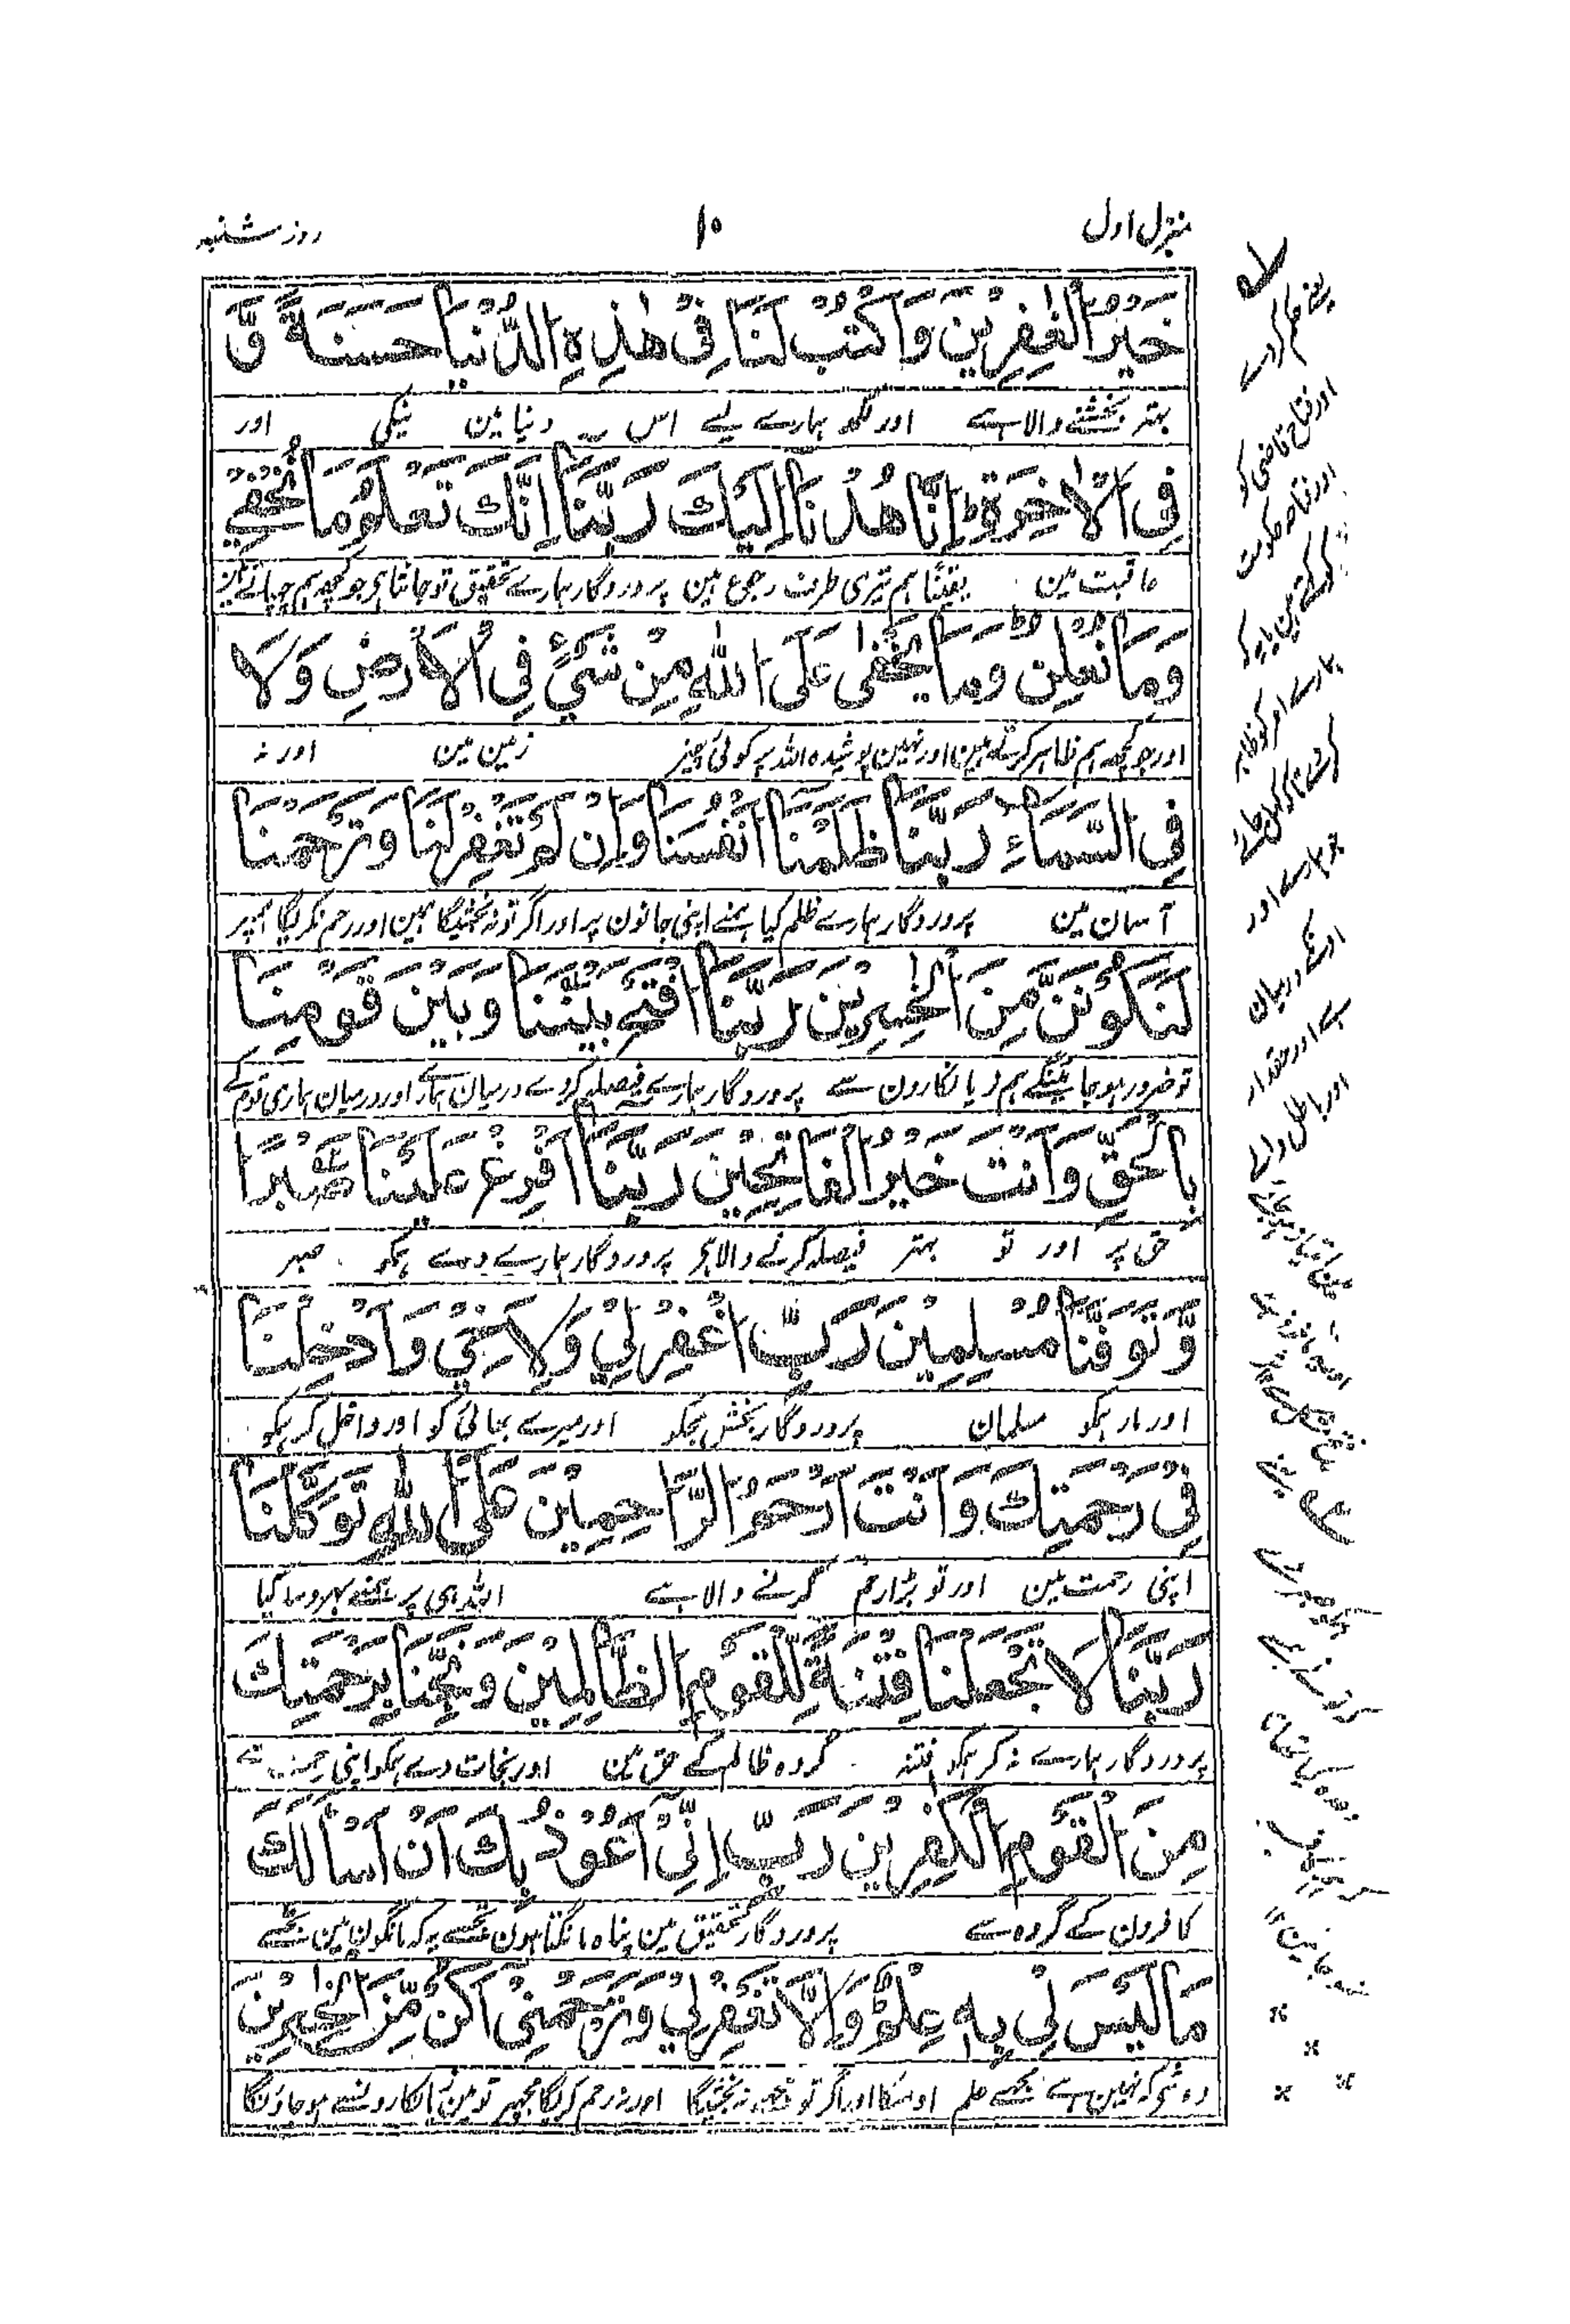 منزل اول
۱۰
روز شنبہ
خَيْرُ الْغٰفِرِيْنَ وَاكْتُبْ لَنَا فِيْ هٰذِهِ الدُّنْيَا حَسَنَةً وَّ
بہتر بخشنے والا ہے اور لکھ ہمارے لیے اس دنیا مین نیکی اور
فِي الْاٰخِرَةِ اِنَّا هُدْنَا اِلَيْكَ رَبَّنَا اِنَّكَ تَعْلَمُ مَا نُخْفِيْ
عاقبت مین یقینًا ہم تیری طرف رجوع ہین پروردگار ہمارے تحقیق تو جانتا ہی جو کچھ ہم چھپاتے ہین
وَمَا نُعْلِنُ وَمَا يَخْفٰى عَلَى اللّٰهِ مِنْ شَيْءٍ فِي الْاَرْضِ وَلَا
اور جو کچھ ہم ظاہر کرتے ہین اور نہین پوشیدہ اللہ پر کوئی چیز زمین مین اور نہ
فِي السَّمَاءِ رَبَّنَا ظَلَمْنَا اَنْفُسَنَا وَاِنْ لَّمْ تَغْفِرْ لَنَا وَتَرْحَمْنَا
آسمان مین پروردگار ہمارے ظلم کیا ہمنے اپنی جانون پر اور اگر تو نہ بخشیگا ہمین اور رحم نکریگا ہمپر
لَنَكُوْنَنَّ مِنَ الْخٰسِرِيْنَ رَبَّنَا افْتَحْ بَيْنَنَا وَبَيْنَ قَوْمِنَا
تو ضرور ہو جائینگے ہم زیانکارون سے پروردگار ہمارے فیصلہ کردے درمیان ہمارے اور درمیان ہماری قوم کے
بِالْحَقِّ وَاَنْتَ خَيْرُ الْفَاتِحِيْنَ رَبَّنَا اَفْرِغْ عَلَيْنَا صَبْرًا
حق پر اور تو بہتر فیصلہ کرنے والا ہی پروردگار ہمارے دے ہمکو صبر
وَّتَوَفَّنَا مُسْلِمِيْنَ رَبِّ اغْفِرْ لِيْ وَلِاَخِيْ وَاَدْخِلْنَا
اور مار ہمکو مسلمان پروردگار بخش مجکو اور میرے بھائی کو اور داخل کر ہمکو
فِيْ رَحْمَتِكَ وَاَنْتَ اَرْحَمُ الرَّاحِمِيْنَ عَلَى اللّٰهِ تَوَكَّلْنَا
اپنی رحمت مین اور تو بڑا رحم کرنے والا ہے اللہ ہی پر ہمنے بھروسا کیا
رَبَّنَا لَا تَجْعَلْنَا فِتْنَةً لِّلْقَوْمِ الظَّالِمِيْنَ وَنَجِّنَا بِرَحْمَتِكَ
پروردگار ہمارے نہ کر ہمکو فتنہ گروہ ظالم کے حق مین اور نجات دے ہمکو اپنی رحمت سے
مِنَ الْقَوْمِ الْكٰفِرِيْنَ رَبِّ اِنِّيْ اَعُوْذُ بِكَ اَنْ اَسْاَلَكَ
کافرون کے گروہ سے پروردگار تحقیق مین پناہ مانگتا ہون تجھسے یہ کہ مانگون مین تجھسے
مَا لَيْسَ لِيْ بِهٖ عِلْمٌ وَاِلَّا تَغْفِرْ لِيْ وَتَرْحَمْنِيْ اَكُنْ مِّنَ الْخٰسِرِيْنَ
وہ شی کہ نہین ہے مجھے علم اوسکا اور اگر تو نہ بخشیگا اور نہ رحم کریگا مجھپر تو مین زیانکارونسے ہو جاؤنگا
یعنے حکم کر دے
اور فتاح قاضی کو
اور فتاحہ حکومت
کو کہتے ہین یا یہ کہ
ہمارے امر کو ظاہر
کر دے تا کہ کھل جائے
جو ہمارے اور
اونکے درمیان
ہے اور حقدار
اور باطل والے